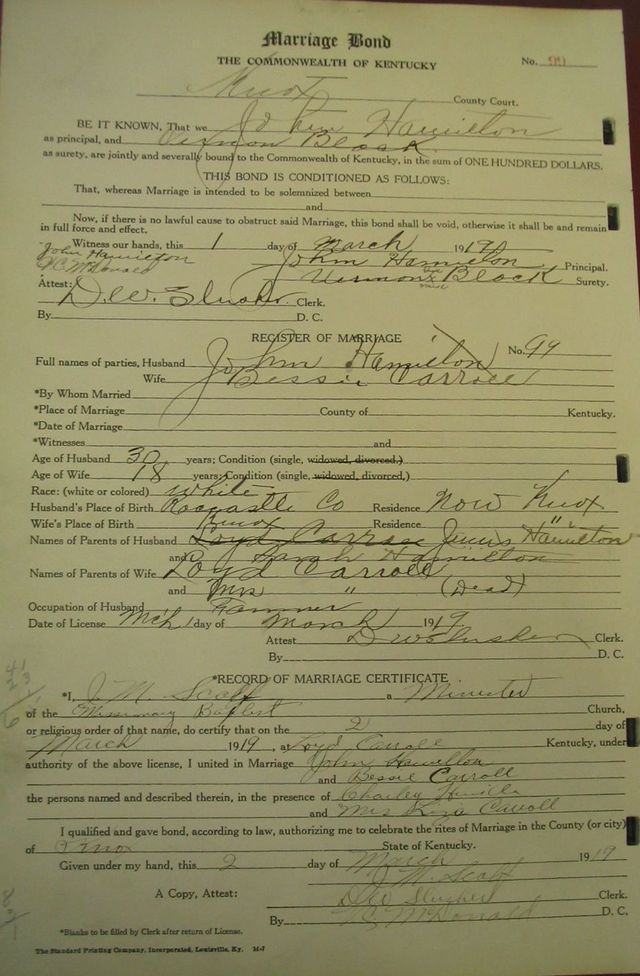 Marriage Bond
THE COMMONWEALTH OF KENTUCKY
No. 99
Knox County Court.
BE IT KNOWN, That we John Hamilton
as principal, and Vernon Black
as surety, are jointly and severally bound to the Commonwealth of Kentucky, in the sum of ONE HUNDRED DOLLARS.
THIS BOND IS CONDITIONED AS FOLLOWS:
That, whereas Marriage is intended to be solemnized between
and
Now, if there is no lawful cause to obstruct said Marriage, this bond shall be void, otherwise it shall be and remain
in full force and effect.
Witness our hands, this 1 day of March 1919
John Hamilton John Hamilton Principal.
H C McDonald Vernon Black Surety.
Attest: Clerk.
By D. C.
REGISTER OF MARRIAGE No. 99
Full names of parties, Husband John Hamilton
Wife Bessie Carroll
*By Whom Married
*Place of Marriage County of Kentucky.
*Date of Marriage
*Witnesses and
Age of Husband 30 years; Condition (single, widowed, divorced,)
Age of Wife 18 years; Condition (single, widowed, divorced,)
Race: (white or colored) white
Husband's Place of Birth Rockcastle Co Residence Now Knox
Wife's Place of Birth Knox Residence " "
Names of Parents of Husband Loyd Carroll Hamilton
and Sarah Hamilton
Names of Parents of Wife Loyd Carroll
and Mrs " (Dead)
Occupation of Husband Farmer
Date of License Mch 1 day of March 1919
Attest Clerk.
By D. C.
*RECORD OF MARRIAGE CERTIFICATE
*I, J. M. Scalf a Minister
of the Missionary Baptist Church,
or religious order of that name, do certify that on the 2 day of
March 1919, at Loyd Carroll Kentucky, under
authority of the above license, I united in Marriage John Hamilton
and Bessie Carroll
the persons named and described therein, in the presence of Charley
and Mrs Carroll
I qualified and gave bond, according to law, authorizing me to celebrate the rites of Marriage in the County (or city)
of Knox State of Kentucky.
Given under my hand, this 2 day of March 1919
J. M. Scalf
A Copy, Attest: Clerk.
By H C McDonald D. C.
*Blanks to be filled by Clerk after return of License.
The Standard Printing Company, Incorporated, Louisville, Ky. M-7